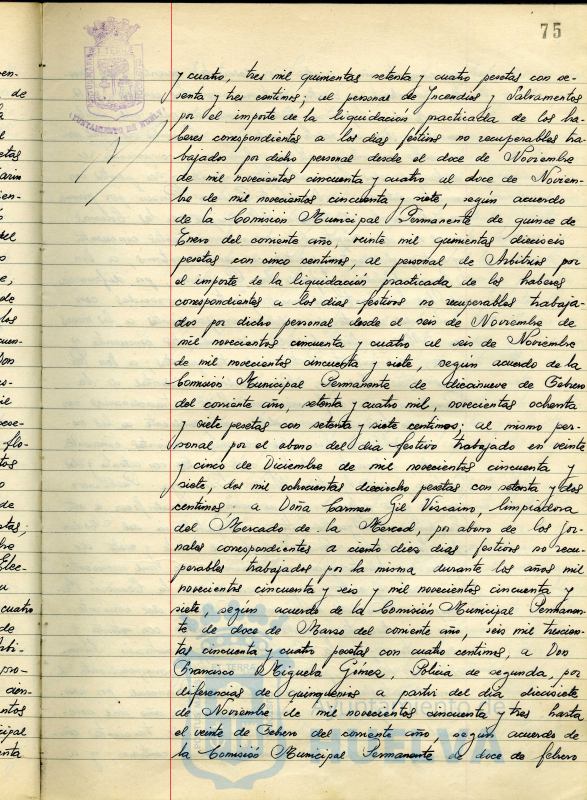 75
AYUNTAMIENTO DE HUELVA
y cuatro, tres mil quinientas setenta y cuatro pesetas con se-
senta y tres centimos; al personal de Incendios y Salvamentos
por el importe de la liquidación practicada de los ha-
beres correspondientes a los dias festivos no recuperables tra-
bajados por dicho personal desde el doce de Noviembre
de mil novecientos cincuenta y cuatro al doce de Noviem-
bre de mil novecientos cincuenta y siete, según acuerdo
de la Comisión Municipal Permanente de quince de
Enero del corriente año, veinte mil quinientas dieciseis
pesetas con cinco centimos, al personal de Arbitrios por
el importe de la liquidación practicada de los haberes
correspondientes a los dias festivos no recuperables trabaja-
dos por dicho personal desde el seis de Noviembre de
mil novecientos cincuenta y cuatro al seis de Noviembre
de mil novecientos cincuenta y siete, según acuerdo de la
Comisión Municipal Permanente de diecinueve de Febrero
del corriente año, setenta y cuatro mil, novecientas ochenta
y siete pesetas con setenta y siete centimos; al mismo per-
sonal por el abono del dia festivo trabajado en veinte
y cinco de Diciembre de mil novecientos cincuenta y
siete, dos mil ochocientas dieciocho pesetas con setenta y dos
centimos, a Doña Carmen Gil Vizcaino, limpiadora
del Mercado de la Merced, por abono de los jor-
nales correspondientes a ciento diez dias festivos no recu-
perables trabajados por la misma durante los años mil
novecientos cincuenta y seis y mil novecientos cincuenta y
siete, según acuerdo de la Comisión Municipal Permanen-
te de doce de Marzo del corriente año, seis mil trescien-
tas cincuenta y cuatro pesetas con cuatro centimos, a Don
Francisco Miguela Gómez, Policia de segunda, por
diferencias de quinquenios a partir del dia diecisiete
de Noviembre de mil novecientos cincuenta y tres hasta
el veinte de Febrero del corriente año, según acuerdo de
la Comisión Municipal Permanente de doce de febrero
Ayuntamiento de
HUELVA